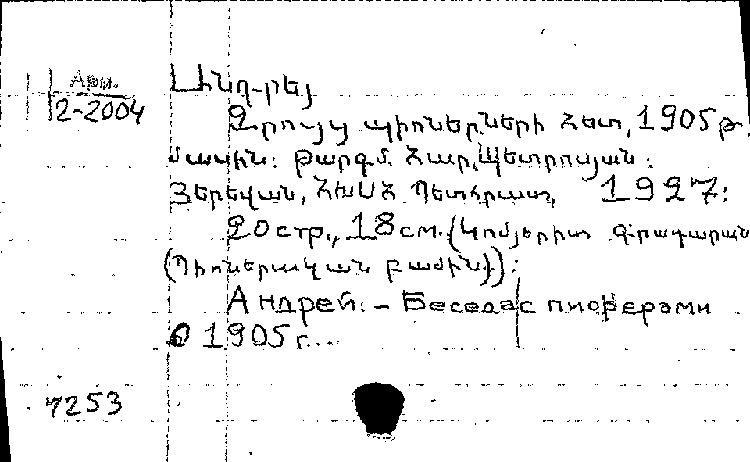 Арм.
2-2004
Անդրեյ
Զրույց պիոներների հետ, 1905 թ.
մասին: Թարգմ. Հար. Պետրոսյան:
Յերեվան, ՀԽՍՀ Պետհրատ, 1927:
20 стр., 18 см. (Կոմյերիտ գրադարան
(Պիոներական բաժին)):
Андрей. - Беседа с пионерами
о 1905 г...
7253